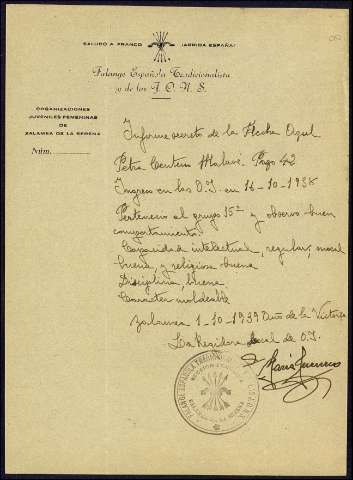 SALUDO A FRANCO ¡ARRIBA ESPAÑA!
Falange Española Tradicionalista
y de las J. O. N. S.
ORGANIZACIONES
JUVENILES FEMENINAS
DE
ZALAMEA DE LA SERENA
Núm.
Informe secreto de la Flecha Azul
Petra Centeno Malavé 42
Ingreso en las O.J. en 16-10-1938
Pertenece al grupo 15º y observo buen
comportamiento
Capacidad intelectual, regular, moral
buena, y religiosa buena
Disciplina, buena
Caracter moldeable
Zalamea 1-10-1939 Año de la Victoria
La Regidora Local de O.J.
María
FALANGE ESPAÑOLA TRADICIONALISTA